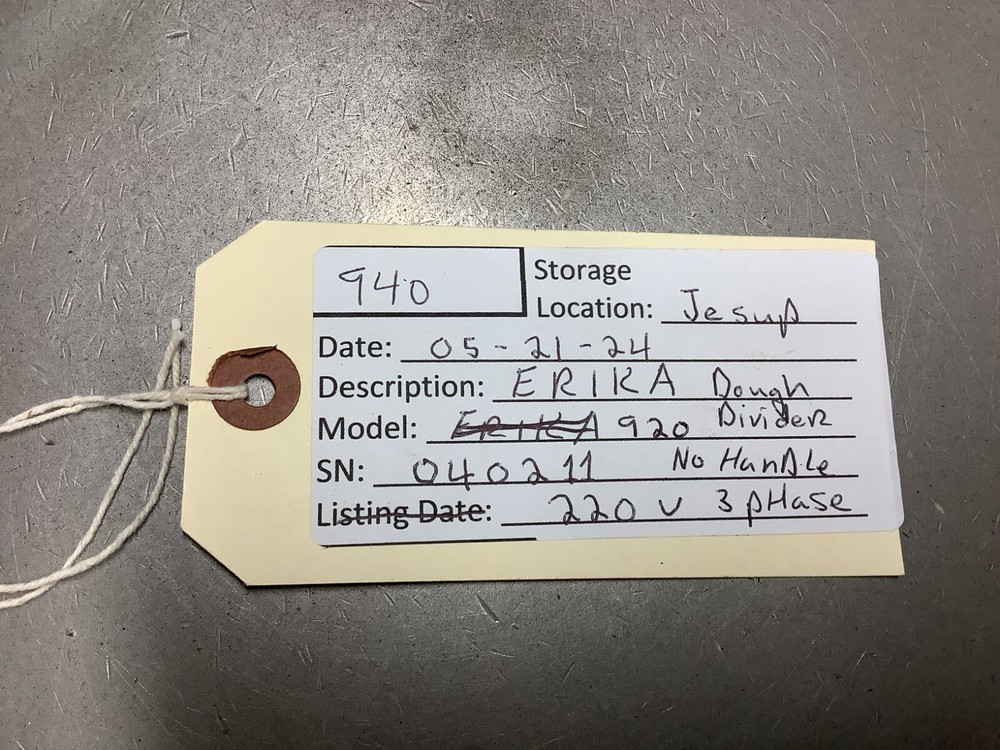 940
Storage
Location: Jesup
Date: 05-21-24
Description: ERIKA Dough
Model: ERIKA 920 Divider
SN: 040211 No Handle
Listing Date: 220 V 3 pHase